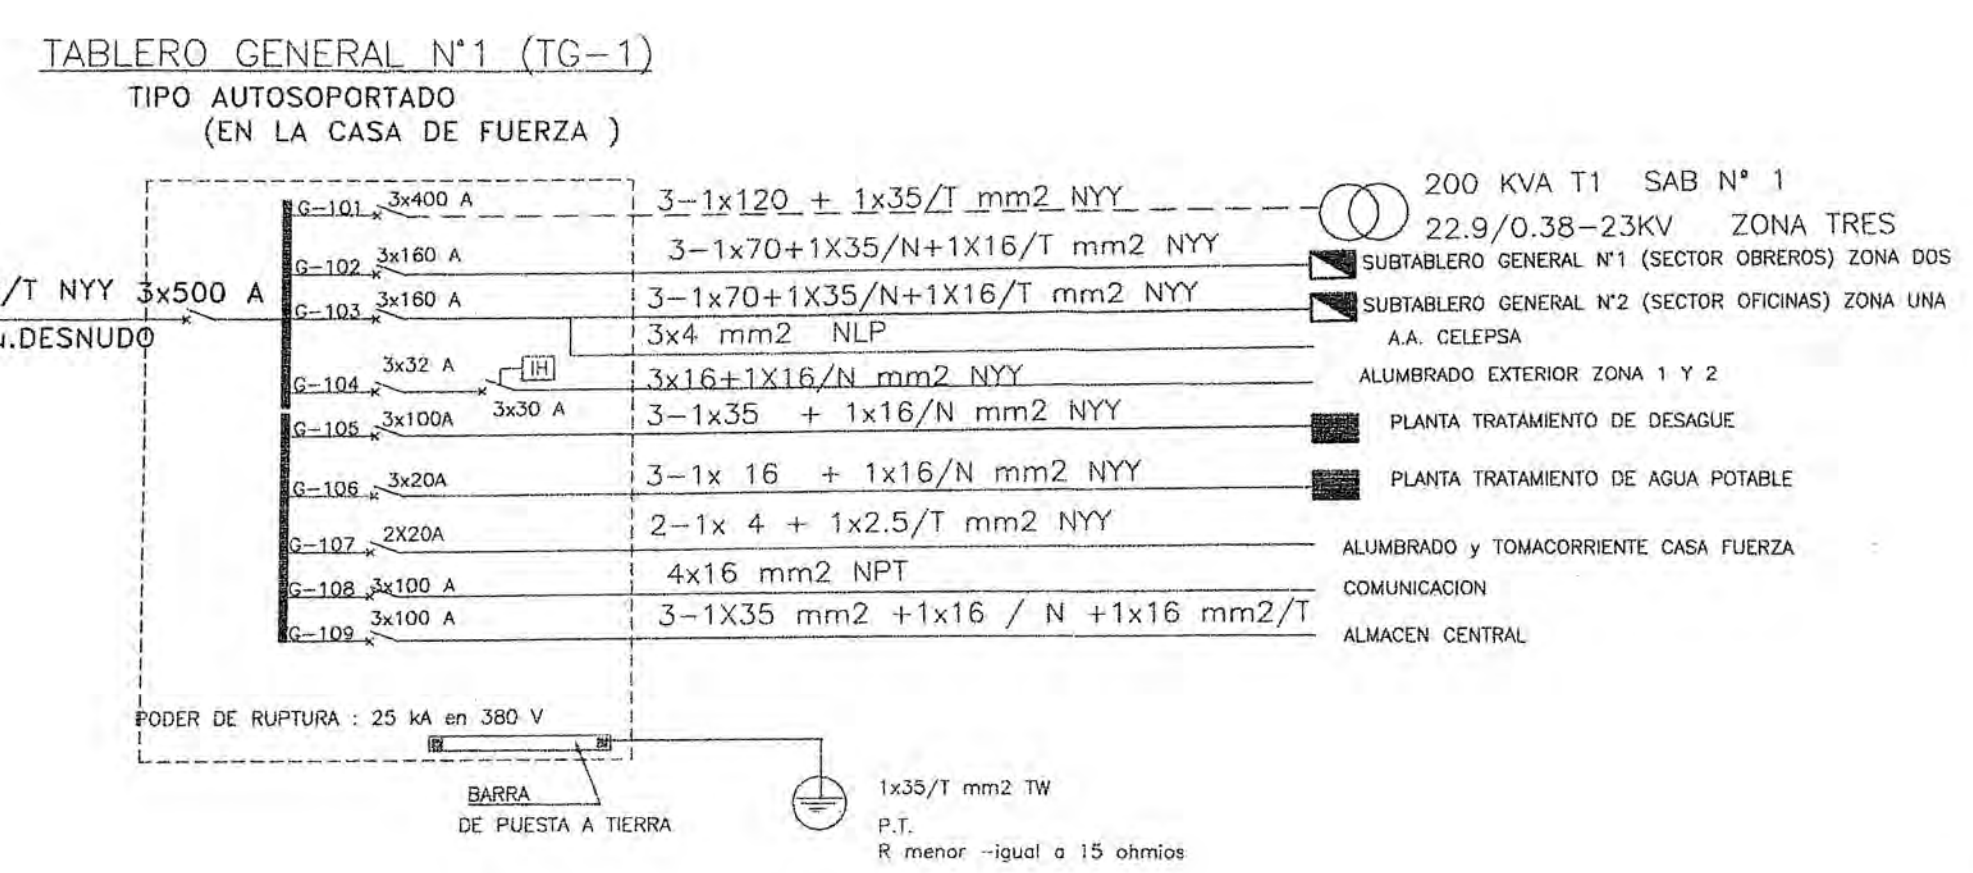 TABLERO GENERAL N°1 (TG-1)
TIPO AUTOSOPORTADO
(EN LA CASA DE FUERZA )
G-101 3x400 A 3-1x120 + 1x35/T mm2 NYY 200 KVA T1 SAB N° 1
22.9/0.38-23KV ZONA TRES
G-102 3x160 A 3-1x70+1X35/N+1X16/T mm2 NYY SUBTABLERO GENERAL N°1 (SECTOR OBREROS) ZONA DOS
/T NYY 3x500 A
.DESNUDO
G-103 3x160 A 3-1x70+1X35/N+1X16/T mm2 NYY SUBTABLERO GENERAL N°2 (SECTOR OFICINAS) ZONA UNA
3x4 mm2 NLP A.A. CELEPSA
G-104 3x32 A IH 3x30 A 3x16+1X16/N mm2 NYY ALUMBRADO EXTERIOR ZONA 1 Y 2
G-105 3x100A 3-1x35 + 1x16/N mm2 NYY PLANTA TRATAMIENTO DE DESAGUE
G-106 3x20A 3-1x 16 + 1x16/N mm2 NYY PLANTA TRATAMIENTO DE AGUA POTABLE
G-107 2X20A 2-1x 4 + 1x2.5/T mm2 NYY ALUMBRADO y TOMACORRIENTE CASA FUERZA
G-108 3x100 A 4x16 mm2 NPT COMUNICACION
G-109 3x100 A 3-1X35 mm2 +1x16 / N +1x16 mm2/T ALMACEN CENTRAL
PODER DE RUPTURA : 25 kA en 380 V
BARRA
DE PUESTA A TIERRA
1x35/T mm2 TW
P.T.
R menor -igual a 15 ohmios